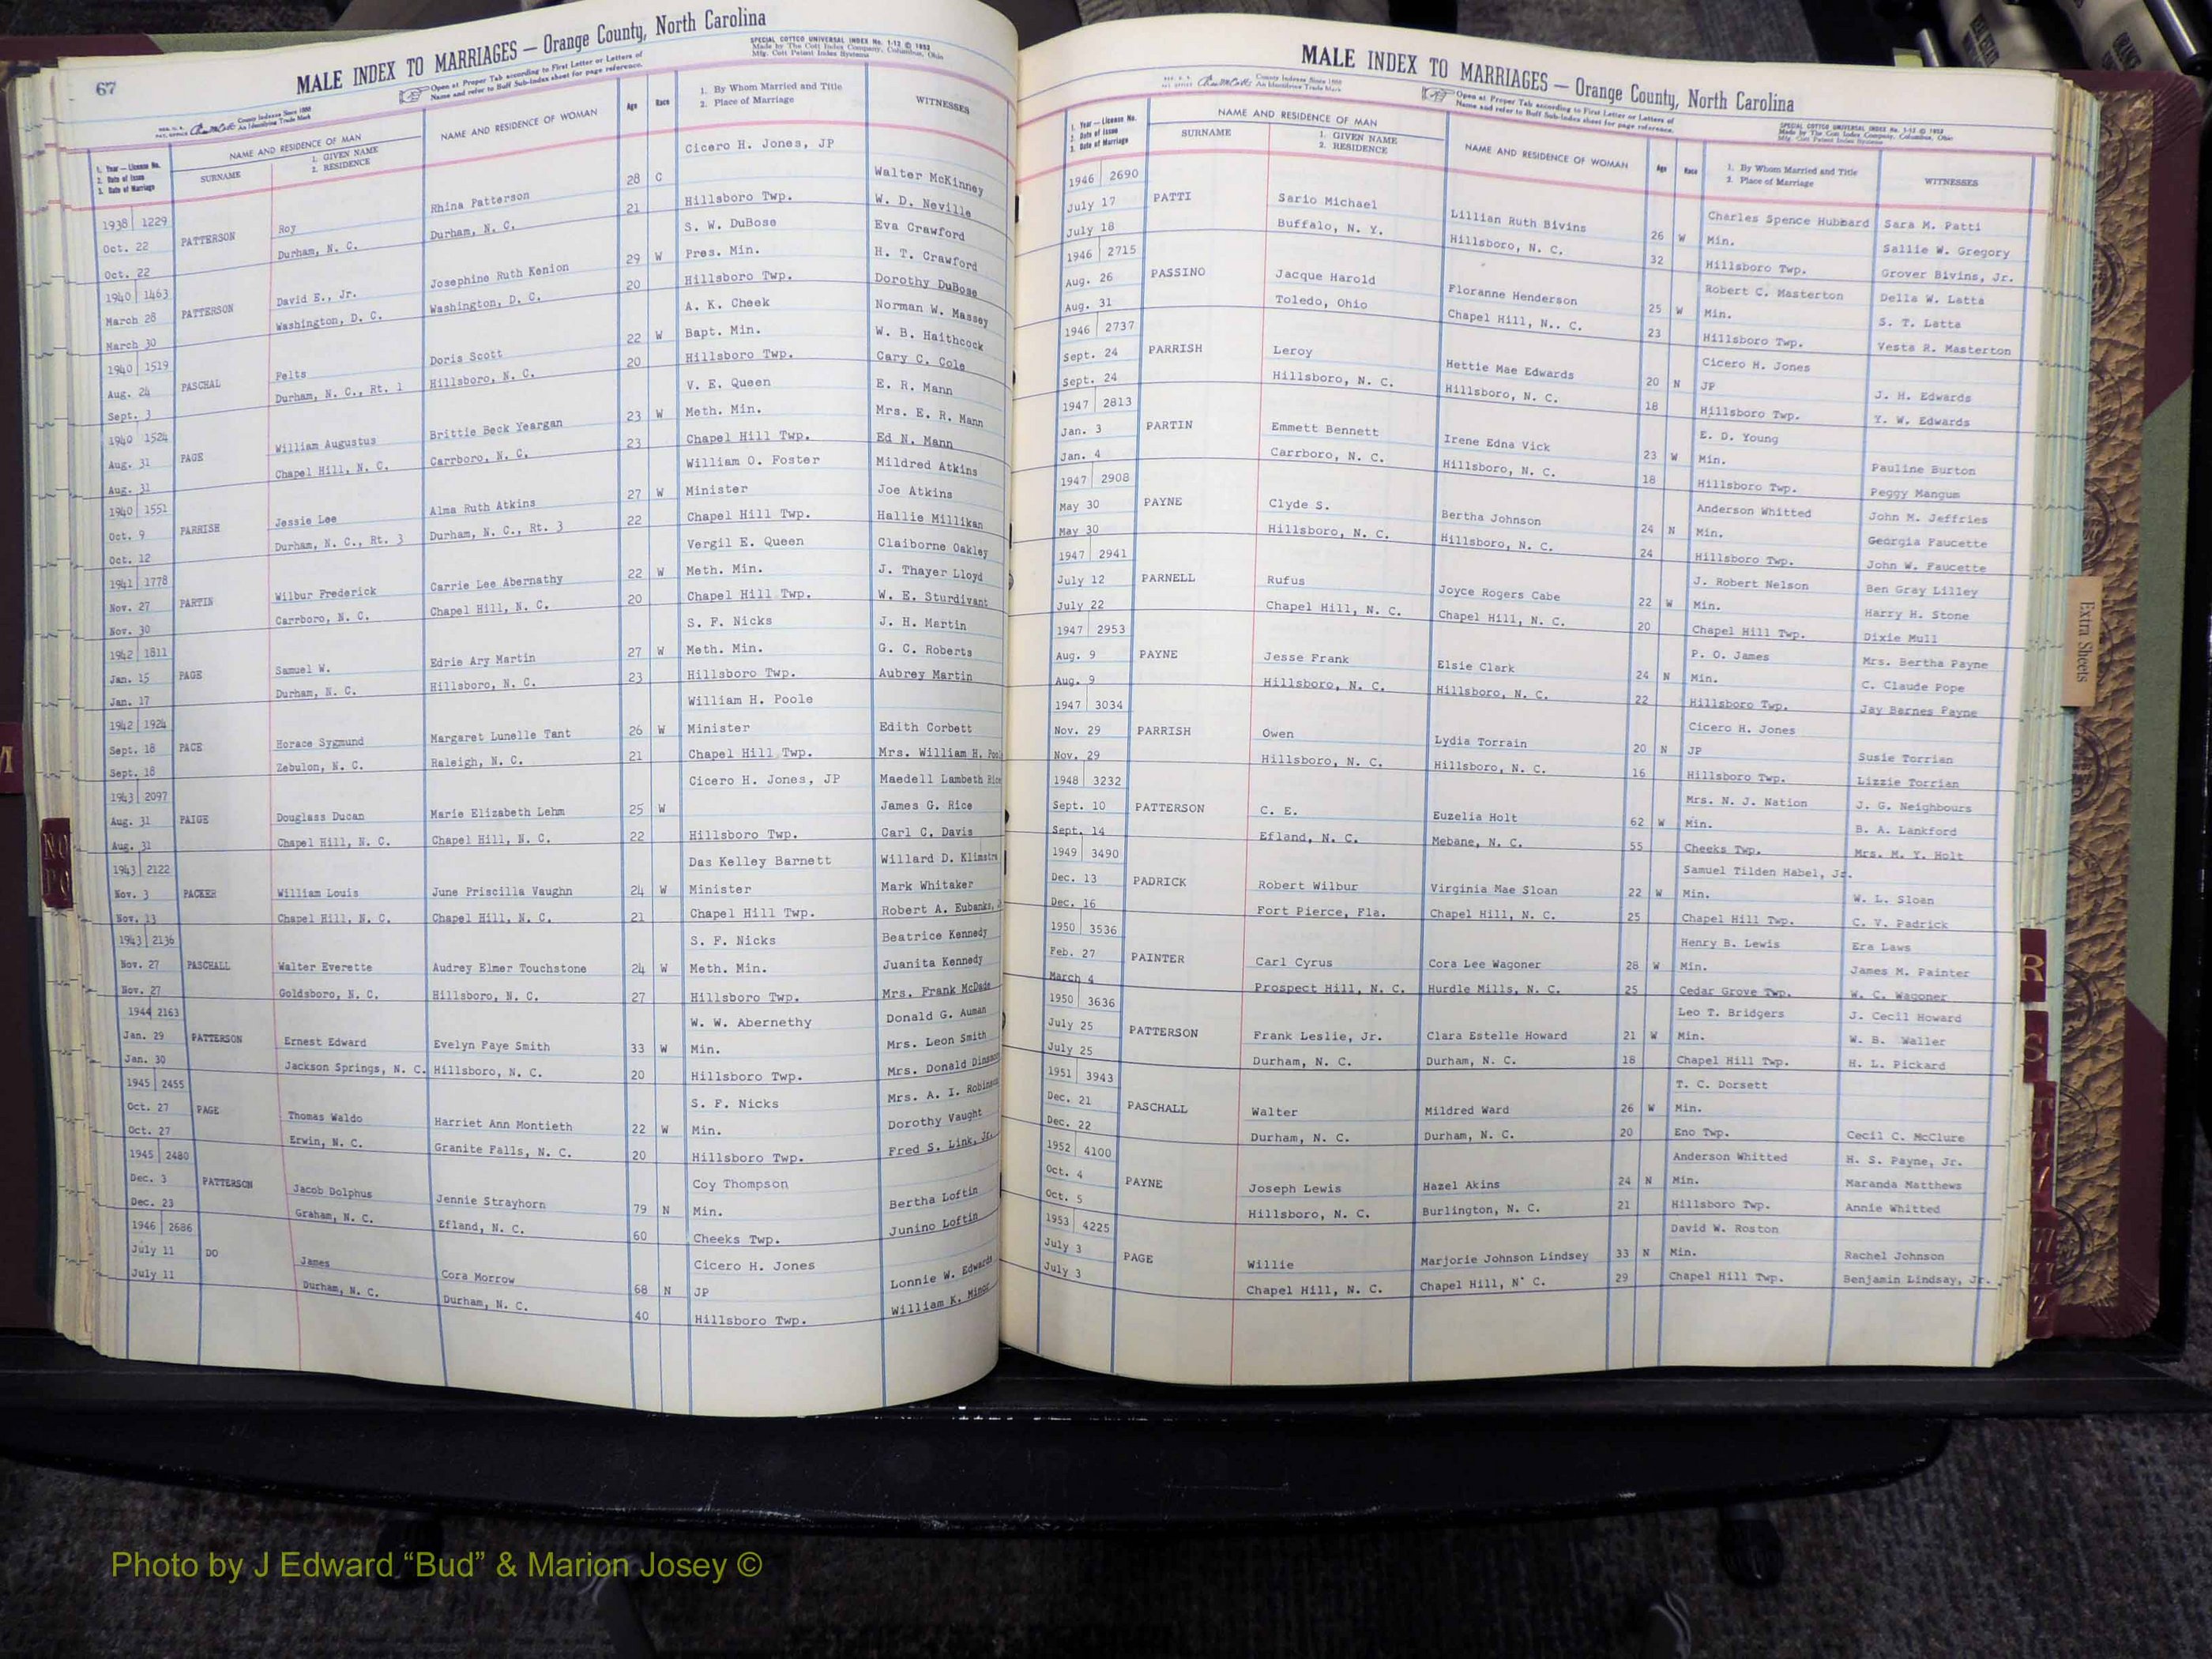 67
MALE INDEX TO MARRIAGES — Orange County, North Carolina
SPECIAL COTTCO UNIVERSAL INDEX No. 1-12 © 1952
Made by The Cott Index Company, Columbus, Ohio
Mfg. Cott Patent Index Systems
Open at Proper Tab according to First Letter or Letters of
Name and refer to Buff Sub-Index sheet for page reference.
County Indexes Since 1888
An Identifying Trade Mark
1. Year — License No.
2. Date of Issue
3. Date of Marriage
NAME AND RESIDENCE OF MAN
SURNAME
1. GIVEN NAME
2. RESIDENCE
NAME AND RESIDENCE OF WOMAN
Age
Race
1. By Whom Married and Title
2. Place of Marriage
WITNESSES
1938 1229 Cicero H. Jones, JP
Oct. 22 PATTERSON Roy Rhina Patterson 28 C Walter McKinney
Oct. 22 Durham, N. C. Durham, N. C. 21 Hillsboro Twp. W. D. Neville
1940 1463 S. W. DuBose Eva Crawford
March 28 PATTERSON David E., Jr. Josephine Ruth Kenion 29 W Pres. Min. H. T. Crawford
March 30 Washington, D. C. Washington, D. C. 20 Hillsboro Twp. Dorothy DuBose
1940 1519 A. K. Cheek Norman W. Massey
Aug. 24 PASCHAL Pelts Doris Scott 22 W Bapt. Min. W. B. Haithcock
Sept. 3 Durham, N. C., Rt. 1 Hillsboro, N. C. 20 Hillsboro Twp. Cary C. Cole
1940 1524 V. E. Queen E. R. Mann
Aug. 31 PAGE William Augustus Brittie Beck Yeargan 23 W Meth. Min. Mrs. E. R. Mann
Aug. 31 Chapel Hill, N. C. Carrboro, N. C. 23 Chapel Hill Twp. Ed N. Mann
1940 1551 William O. Foster Mildred Atkins
Oct. 9 PARRISH Jessie Lee Alma Ruth Atkins 27 W Minister Joe Atkins
Oct. 12 Durham, N. C., Rt. 3 Durham, N. C., Rt. 3 22 Chapel Hill Twp. Hallie Millikan
1941 1778 Vergil E. Queen Claiborne Oakley
Nov. 27 PARTIN Wilbur Frederick Carrie Lee Abernathy 22 W Meth. Min. J. Thayer Lloyd
Nov. 30 Carrboro, N. C. Chapel Hill, N. C. 20 Chapel Hill Twp. W. E. Sturdivant
1942 1811 S. F. Nicks J. H. Martin
Jan. 15 PAGE Samuel W. Edrie Ary Martin 27 W Meth. Min. G. C. Roberts
Jan. 17 Durham, N. C. Hillsboro, N. C. 23 Hillsboro Twp. Aubrey Martin
1942 1924 William H. Poole
Sept. 18 PACE Horace Sygmund Margaret Lunelle Tant 26 W Minister Edith Corbett
Sept. 18 Zebulon, N. C. Raleigh, N. C. 21 Chapel Hill Twp. Mrs. William H.
1943 2097 Cicero H. Jones, JP Maedell Lambeth Rice
Aug. 31 PAIGE Douglass Ducan Marie Elizabeth Lehm 25 W James G. Rice
Aug. 31 Chapel Hill, N. C. Chapel Hill, N. C. 22 Hillsboro Twp. Carl C. Davis
1943 2122 Das Kelley Barnett Willard D. Klimstra
Nov. 3 PACKER William Louis June Priscilla Vaughn 24 W Minister Mark Whitaker
Nov. 13 Chapel Hill, N. C. Chapel Hill, N. C. 21 Chapel Hill Twp. Robert A. Eubanks,
1943 2136 S. F. Nicks Beatrice Kennedy
Nov. 27 PASCHALL Walter Everette Audrey Elmer Touchstone 24 W Meth. Min. Juanita Kennedy
Nov. 27 Goldsboro, N. C. Hillsboro, N. C. 27 Hillsboro Twp. Mrs. Frank McDade
1944 2163 W. W. Abernethy Donald G. Auman
Jan. 29 PATTERSON Ernest Edward Evelyn Faye Smith 33 W Min. Mrs. Leon Smith
Jan. 30 Jackson Springs, N. C. Hillsboro, N. C. 20 Hillsboro Twp. Mrs. Donald
1945 2455 S. F. Nicks Mrs. A. I.
Oct. 27 PAGE Thomas Waldo Harriet Ann Montieth 22 W Min. Dorothy Vaught
Oct. 27 Erwin, N. C. Granite Falls, N. C. 20 Hillsboro Twp. Fred S. Link, Jr.
1945 2480 Coy Thompson
Dec. 3 PATTERSON Jacob Dolphus Jennie Strayhorn 79 N Min. Bertha Loftin
Dec. 23 Graham, N. C. Efland, N. C. 60 Cheeks Twp. Junino Loftin
1946 2686 Cicero H. Jones
July 11 DO James Cora Morrow 68 N JP Lonnie W. Edwards
July 11 Durham, N. C. Durham, N. C. 40 Hillsboro Twp. William K.
MALE INDEX TO MARRIAGES — Orange County, North Carolina
County Indexes Since 1888
An Identifying Trade Mark
Open at Proper Tab according to First Letter or Letters of
Name and refer to Buff Sub-Index sheet for page reference.
SPECIAL COTTCO UNIVERSAL INDEX No. 1-12 © 1952
Made by The Cott Index Company, Columbus, Ohio
Mfg. Cott Patent Index Systems
1. Year — License No.
2. Date of Issue
3. Date of Marriage
NAME AND RESIDENCE OF MAN
SURNAME
1. GIVEN NAME
2. RESIDENCE
NAME AND RESIDENCE OF WOMAN
Age
Race
1. By Whom Married and Title
2. Place of Marriage
WITNESSES
1946 2690 Charles Spence Hubbard Sara M. Patti
July 17 PATTI Sario Michael Lillian Ruth Bivins 26 W Min. Sallie W. Gregory
July 18 Buffalo, N. Y. Hillsboro, N. C. 32 Hillsboro Twp. Grover Bivins, Jr.
1946 2715 Robert C. Masterton Della W. Latta
Aug. 26 PASSINO Jacque Harold Floranne Henderson 25 W Min. S. T. Latta
Aug. 31 Toledo, Ohio Chapel Hill, N.. C. 23 Hillsboro Twp. Vesta R. Masterton
1946 2737 Cicero H. Jones
Sept. 24 PARRISH Leroy Hettie Mae Edwards 20 N JP J. H. Edwards
Sept. 24 Hillsboro, N. C. Hillsboro, N. C. 18 Hillsboro Twp. Y. W. Edwards
1947 2813 E. D. Young
Jan. 3 PARTIN Emmett Bennett Irene Edna Vick 23 W Min. Pauline Burton
Jan. 4 Carrboro, N. C. Hillsboro, N. C. 18 Hillsboro Twp. Peggy Mangum
1947 2908 Anderson Whitted John M. Jeffries
May 30 PAYNE Clyde S. Bertha Johnson 24 N Min. Georgia Faucette
May 30 Hillsboro, N. C. Hillsboro, N. C. 24 Hillsboro Twp. John W. Faucette
1947 2941 J. Robert Nelson Ben Gray Lilley
July 12 PARNELL Rufus Joyce Rogers Cabe 22 W Min. Harry H. Stone
July 22 Chapel Hill, N. C. Chapel Hill, N. C. 20 Chapel Hill Twp. Dixie Mull
1947 2953 P. O. James Mrs. Bertha Payne
Aug. 9 PAYNE Jesse Frank Elsie Clark 24 N Min. C. Claude Pope
Aug. 9 Hillsboro, N. C. Hillsboro, N. C. 22 Hillsboro Twp. Jay Barnes Payne
1947 3034 Cicero H. Jones
Nov. 29 PARRISH Owen Lydia Torrain 20 N JP Susie Torrian
Nov. 29 Hillsboro, N. C. Hillsboro, N. C. 16 Hillsboro Twp. Lizzie Torrian
1948 3232 Mrs. N. J. Nation J. G. Neighbours
Sept. 10 PATTERSON C. E. Euzelia Holt 62 W Min. B. A. Lankford
Sept. 14 Efland, N. C. Mebane, N. C. 55 Cheeks Twp. Mrs. M. Y. Holt
1949 3490 Samuel Tilden Habel, Jr.
Dec. 13 PADRICK Robert Wilbur Virginia Mae Sloan 22 W Min. W. L. Sloan
Dec. 16 Fort Pierce, Fla. Chapel Hill, N. C. 25 Chapel Hill Twp. C. V. Padrick
1950 3536 Henry B. Lewis Era Laws
Feb. 27 PAINTER Carl Cyrus Cora Lee Wagoner 28 W Min. James M. Painter
March 4 Prospect Hill, N. C. Hurdle Mills, N. C. 25 Cedar Grove Twp. W. C. Wagoner
1950 3636 Leo T. Bridgers J. Cecil Howard
July 25 PATTERSON Frank Leslie, Jr. Clara Estelle Howard 21 W Min. W. B. Waller
July 25 Durham, N. C. Durham, N. C. 18 Chapel Hill Twp. H. L. Pickard
1951 3943 T. C. Dorsett
Dec. 21 PASCHALL Walter Mildred Ward 26 W Min.
Dec. 22 Durham, N. C. Durham, N. C. 20 Eno Twp. Cecil C. McClure
1952 4100 Anderson Whitted H. S. Payne, Jr.
Oct. 4 PAYNE Joseph Lewis Hazel Akins 24 N Min. Maranda Matthews
Oct. 5 Hillsboro, N. C. Burlington, N. C. 21 Hillsboro Twp. Annie Whitted
1953 4225 David W. Roston
July 3 PAGE Willie Marjorie Johnson Lindsey 33 N Min. Rachel Johnson
July 3 Chapel Hill, N. C. Chapel Hill, N' C. 29 Chapel Hill Twp. Benjamin Lindsay, Jr.
Extra Sheets
NO
PQ
R
S
T
U
Z
Photo by J Edward “Bud” & Marion Josey ©